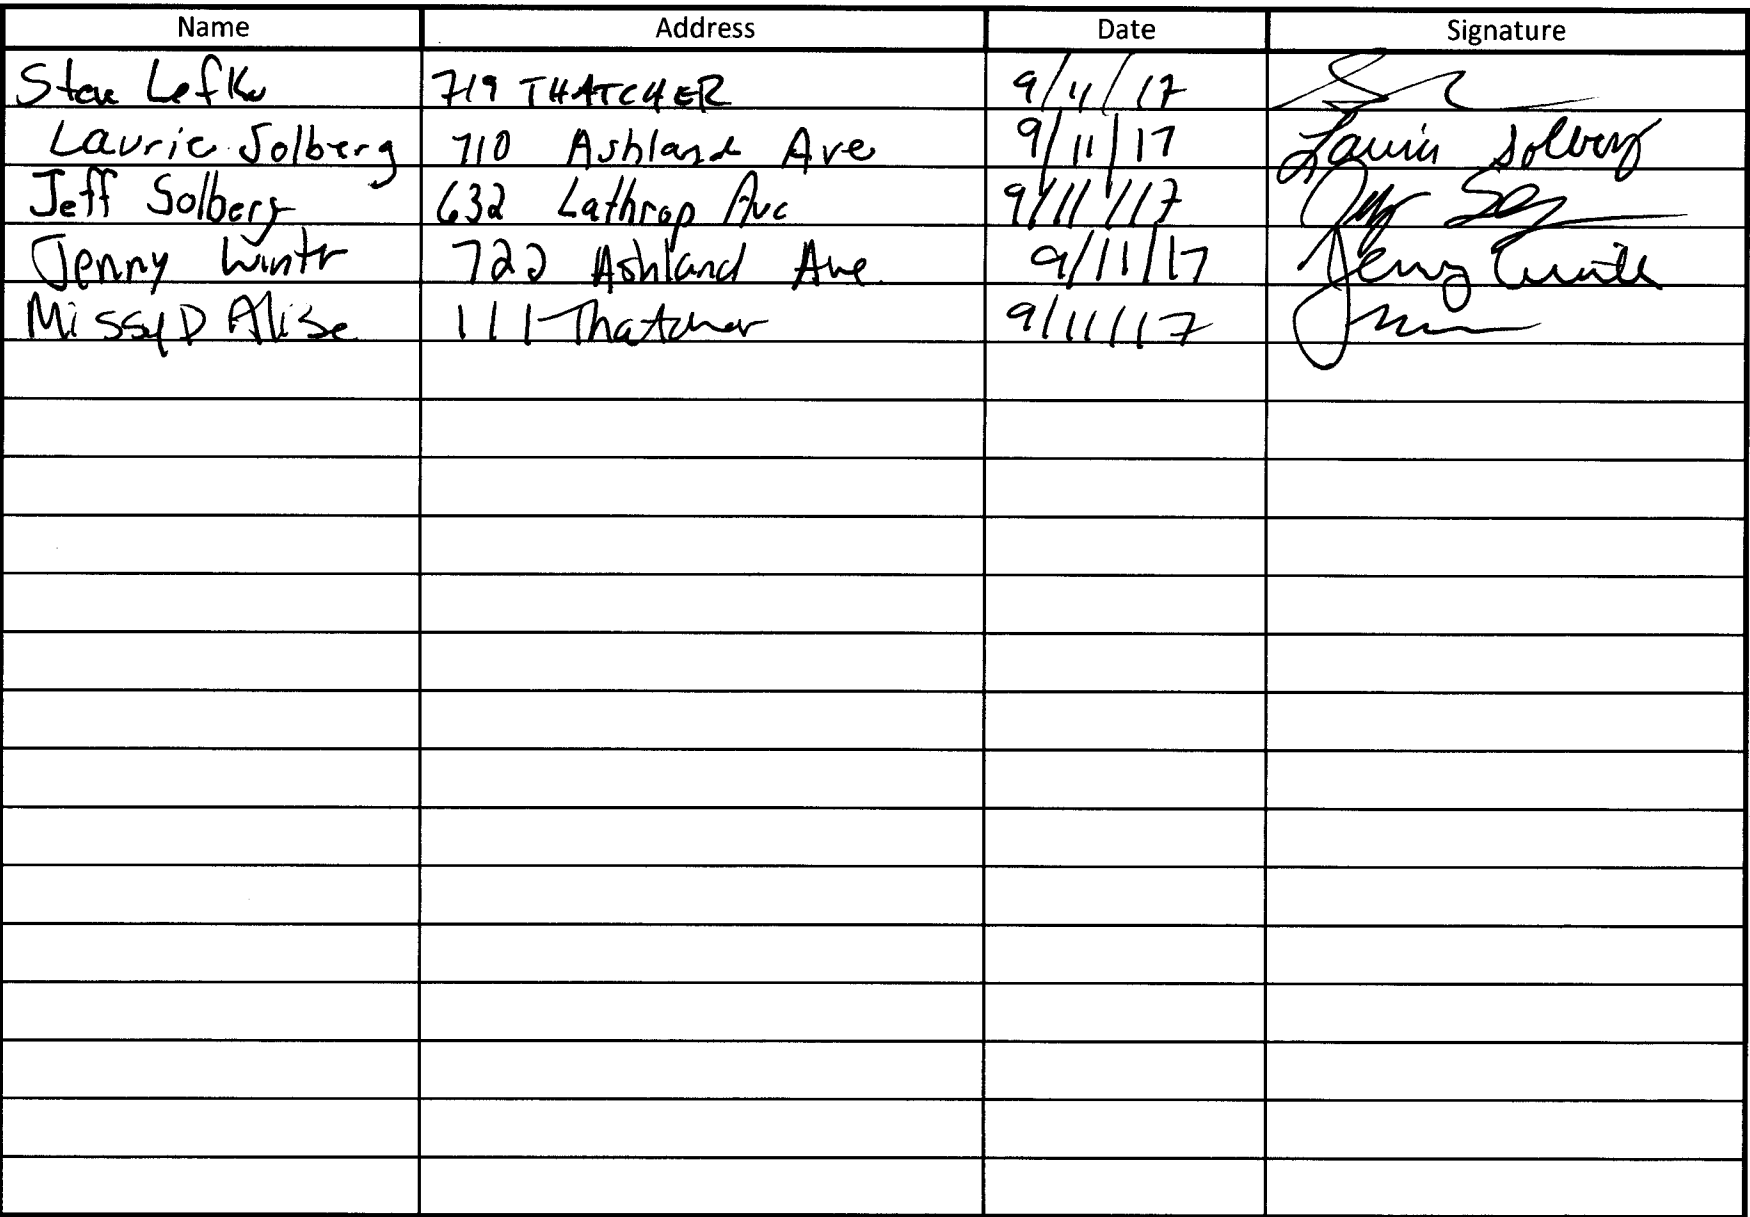 Name Address Date Signature
Steve Lefko 719 THATCHER 9/11/17
Laurie Solberg 710 Ashland Ave 9/11/17 Laurie Solberg
Jeff Solberg 632 Lathrop Ave 9/11/17
Jenny Wintr 722 Ashland Ave 9/11/17 Jenny
Missy D Alise 111 Thatcher 9/11/17